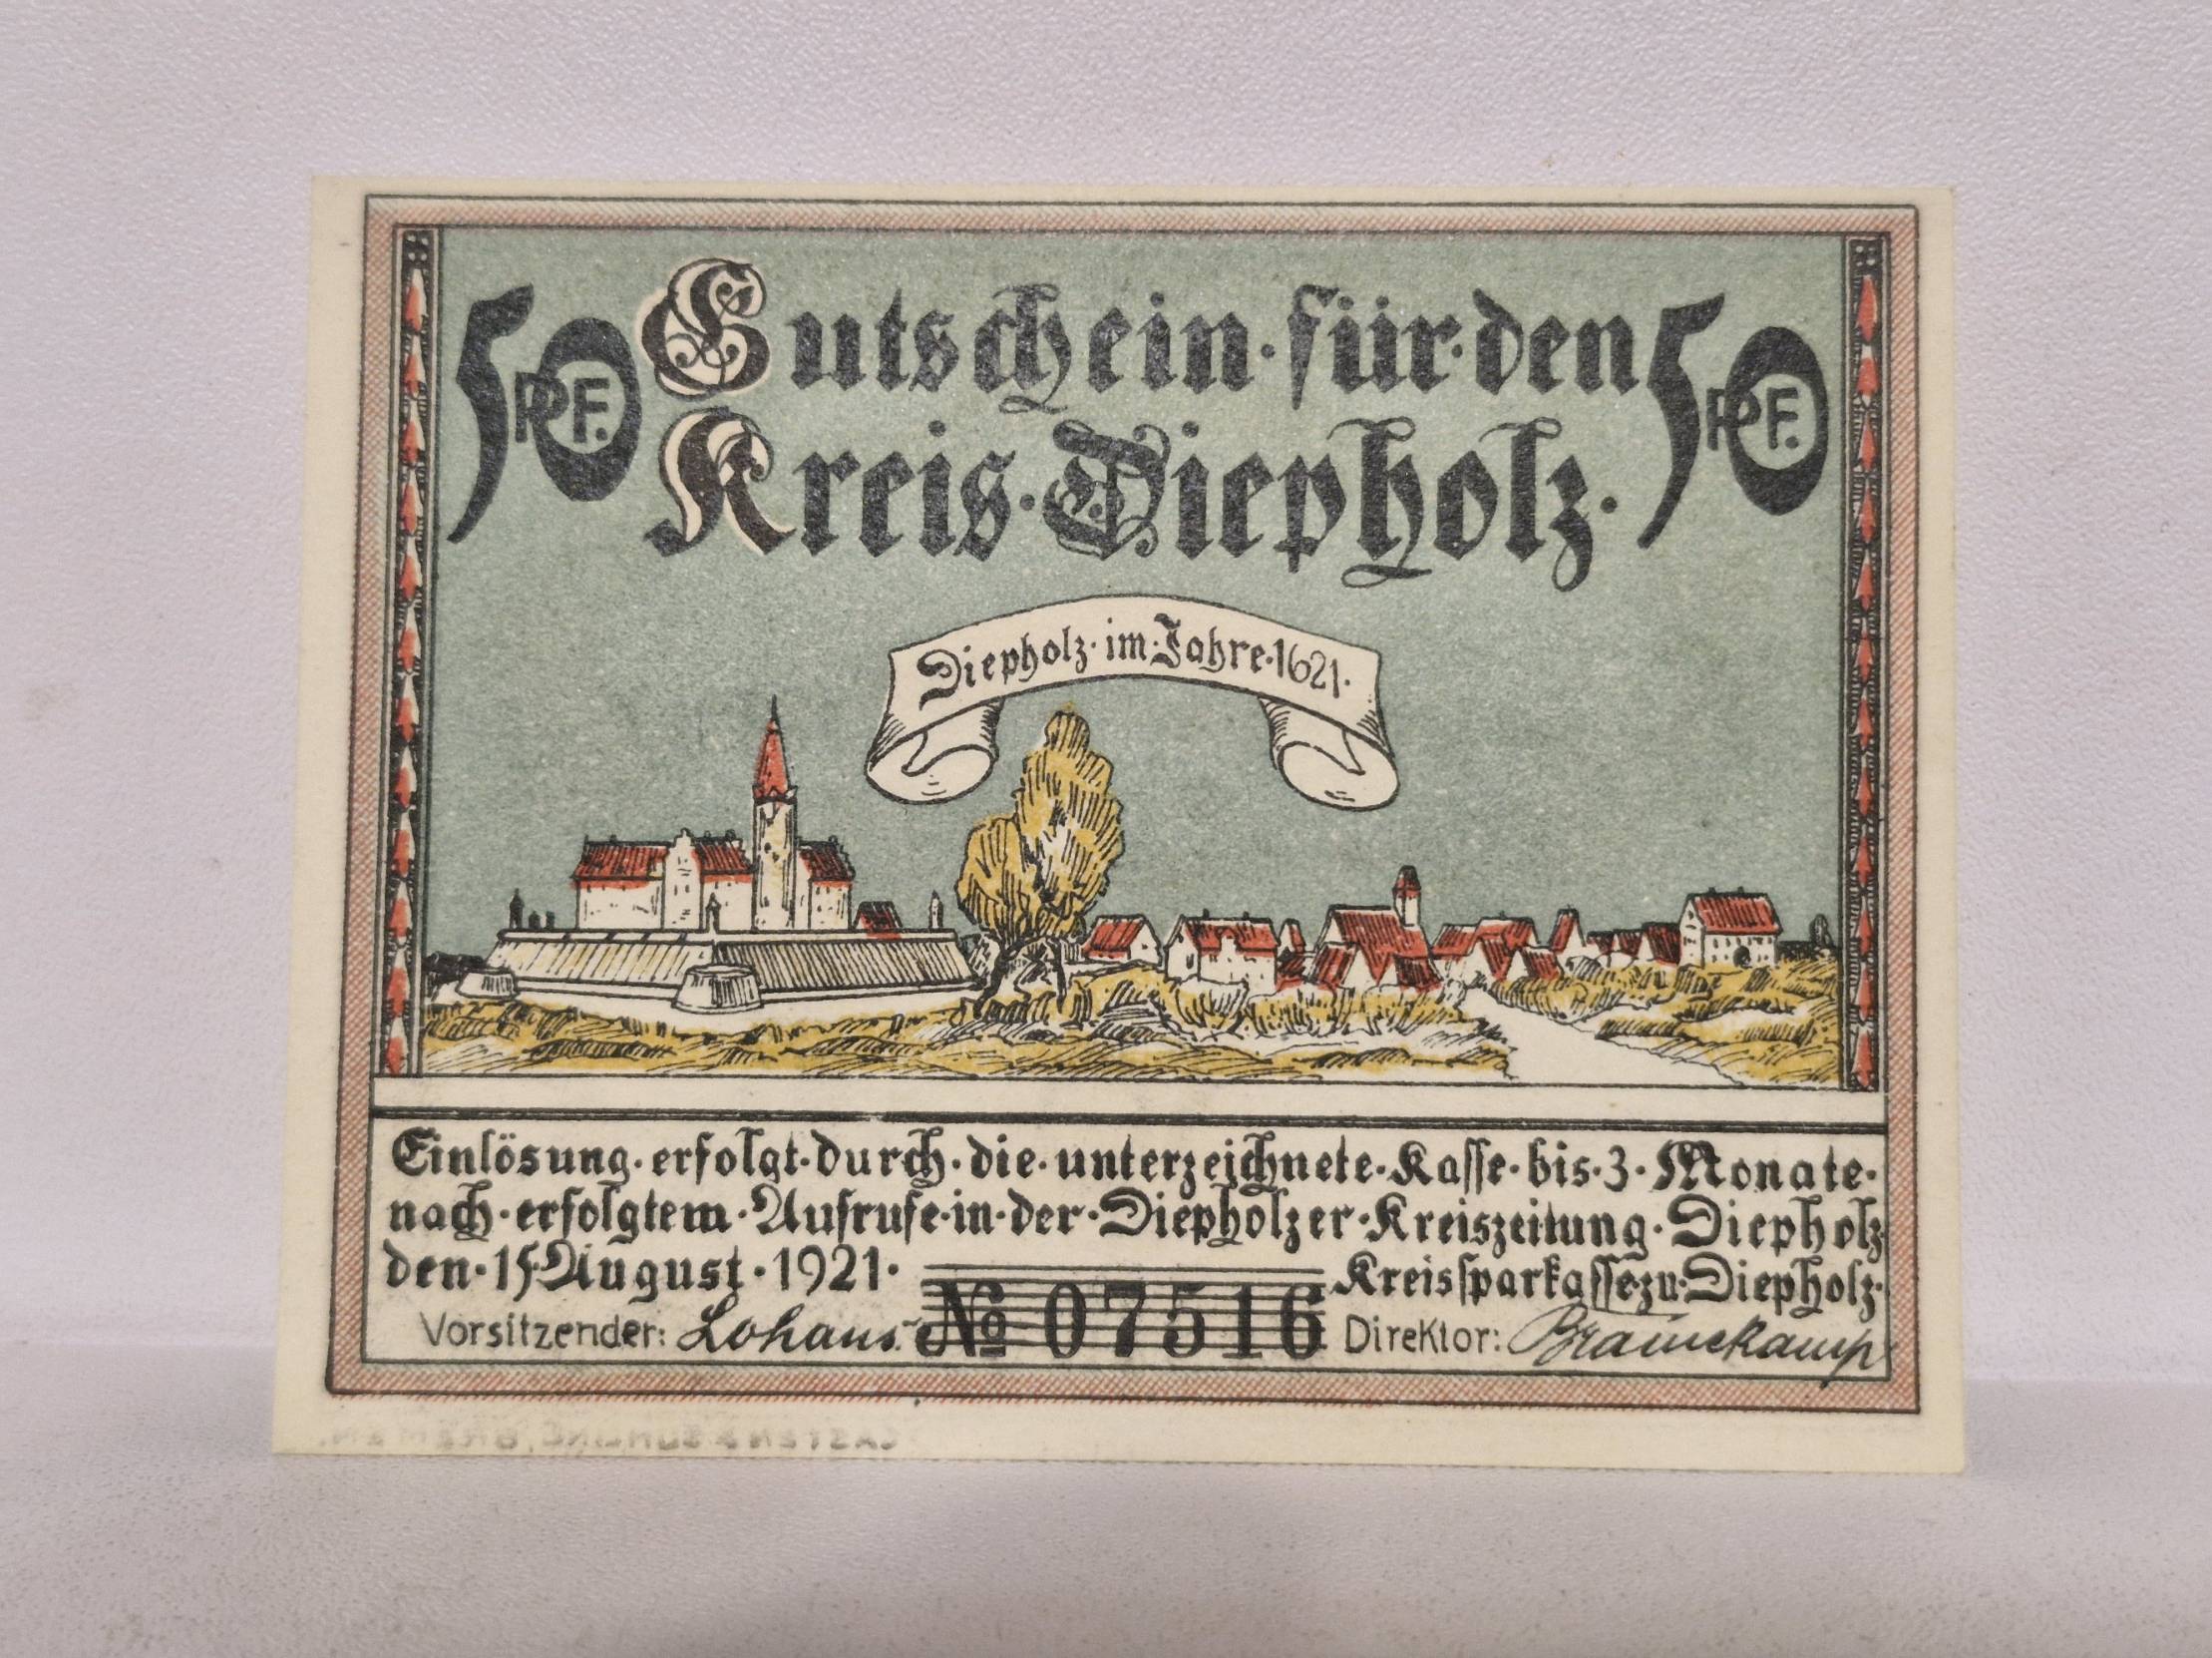 50 PF. Gutschein·für·den 50 PF.
Kreis·Diepholz·
Diepholz·im·Jahre·1621·
Einlösung·erfolgt·durch·die·unterzeichnete·Kasse·bis·3·Monate·
nach·erfolgtem·Aufrufe·in·der·Diepholzer·Kreiszeitung·Diepholz
den·15·August·1921·
Kreissparkasse·zu·Diepholz·
Vorsitzender: Lohaus. № 07516 Direktor: